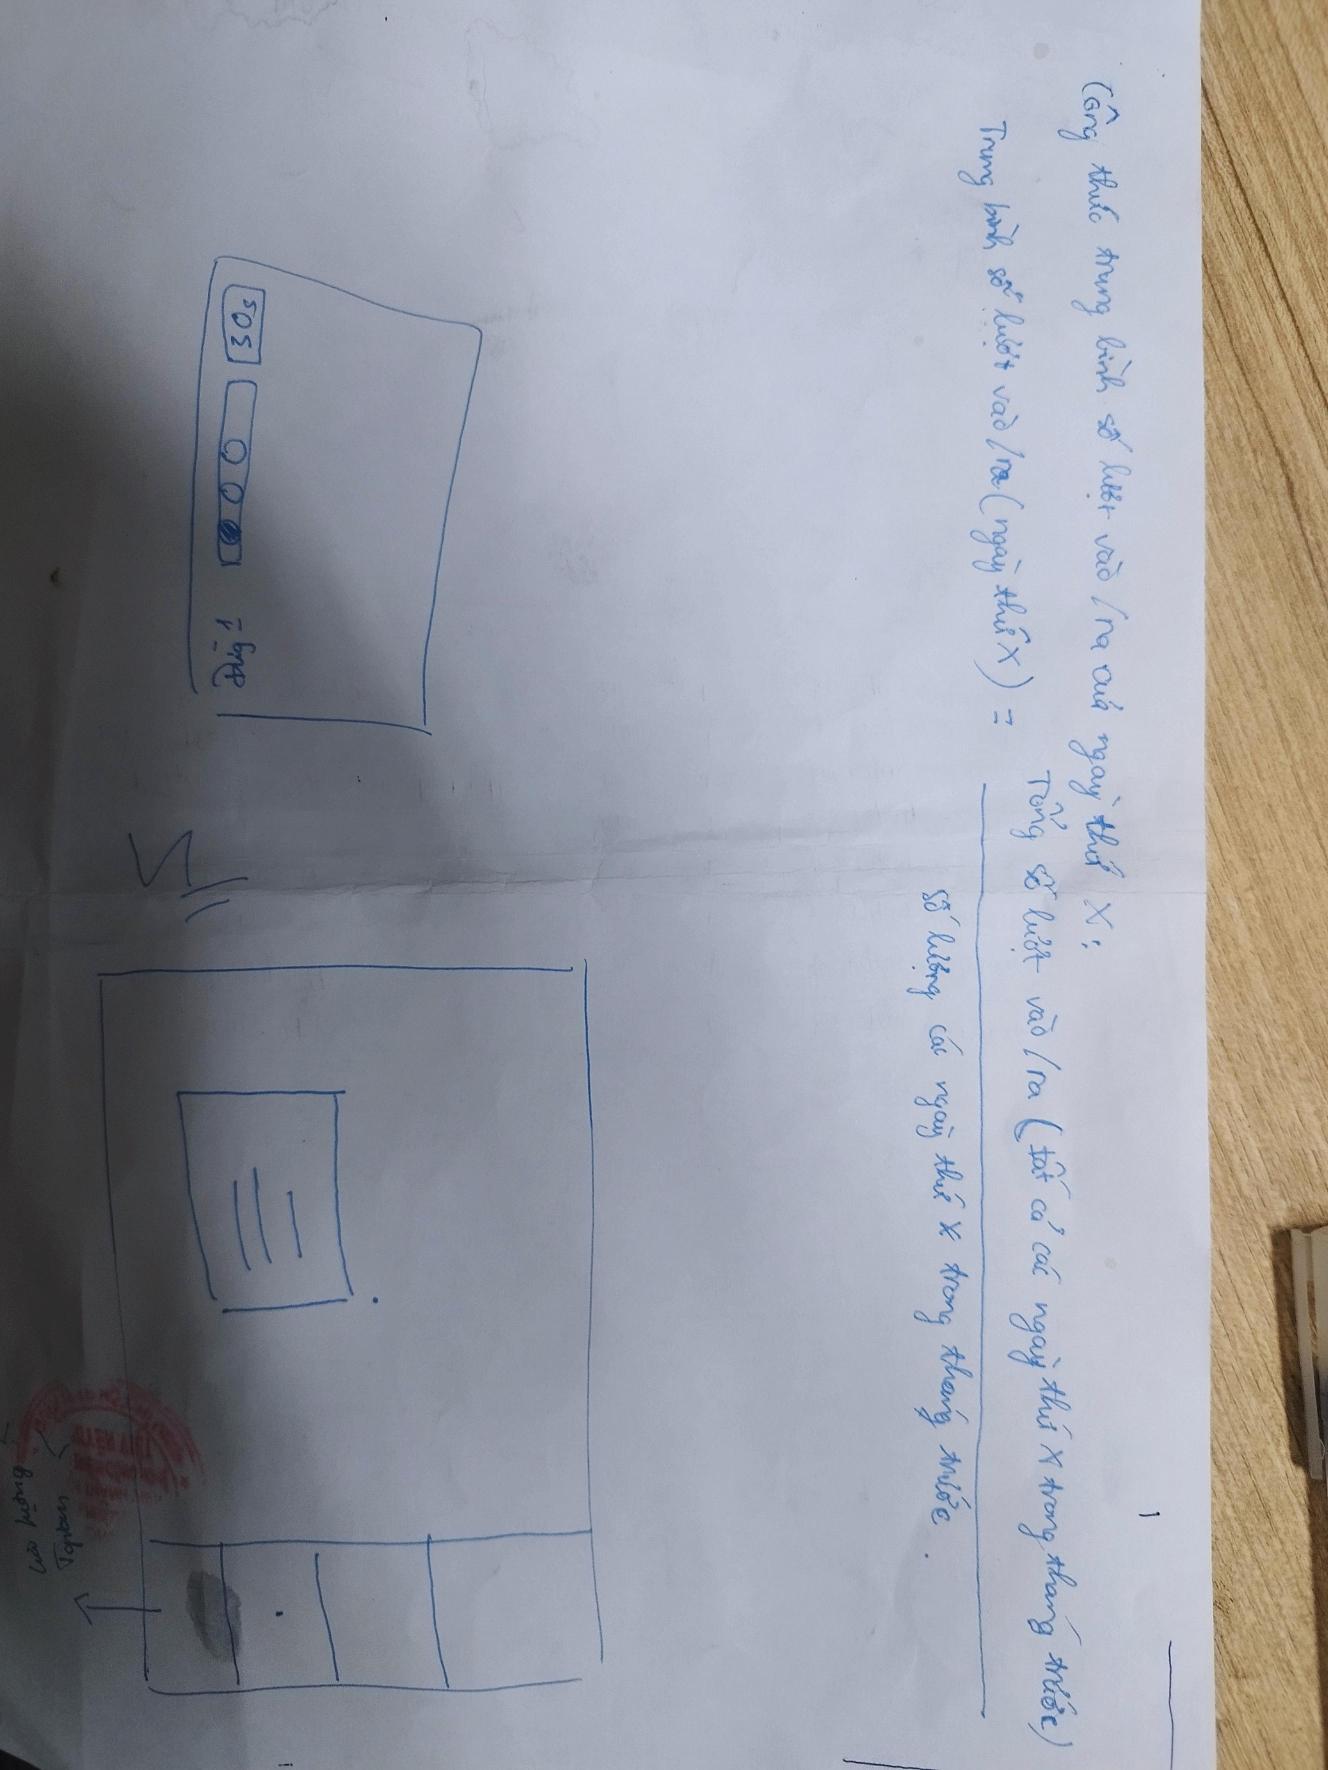 Công thức trung bình số lượt vào / ra của ngày thứ X:
Trung bình số lượt vào / ra (ngày thứ X) =
Tổng số lượt vào / ra (tất cả các ngày thứ X trong tháng trước)
số lượng các ngày thứ X trong tháng trước.
30s